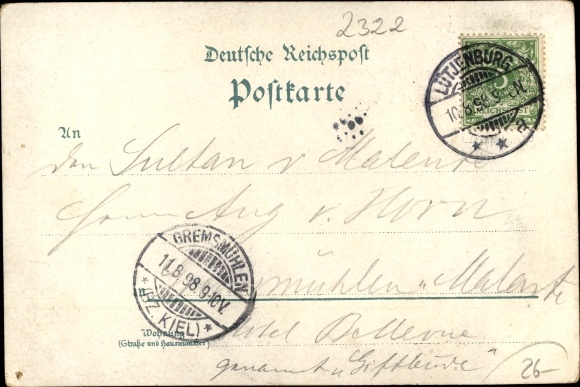 2322
Deutsche Reichspost
Postkarte
LÜTJENBURG
10.8.98
REICHSPOST
An
den Sultan v Malente
Herrn Aug v. Horn
GREMSMÜHLEN
11.8.98.9-10V.
(BZ. KIEL)
Gremsmühlen Malente
Hotel Bellevue
Wohnung
(Straße und Hausnummer)
genannt „Giftbude“
26-